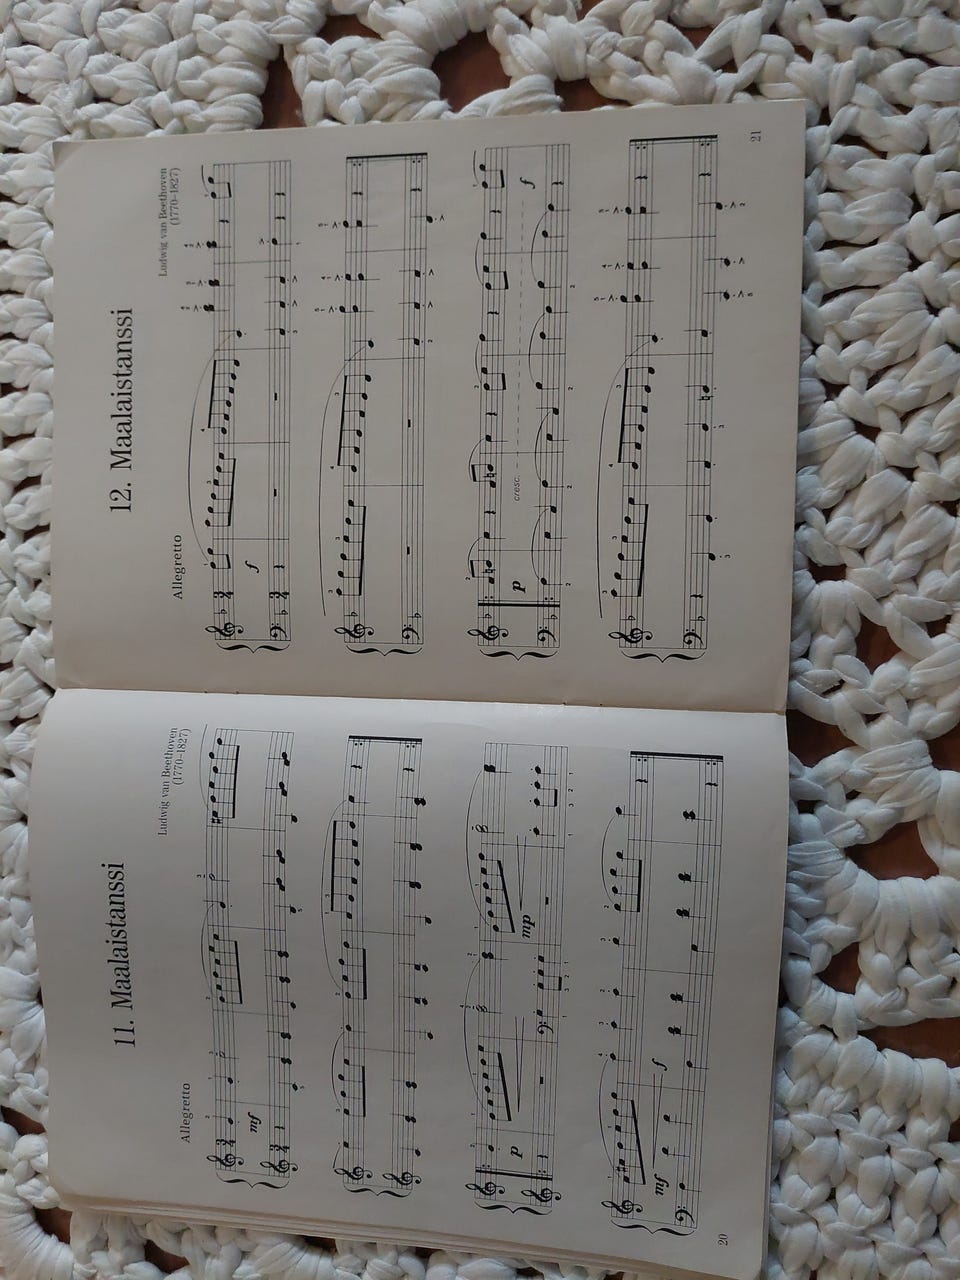 11. Maalaistanssi
Ludwig van Beethoven
(1770–1827)
Allegretto
mf
p
mp
mf
f
20
12. Maalaistanssi
Ludwig van Beethoven
(1770–1827)
Allegretto
f
p
cresc.
f
21